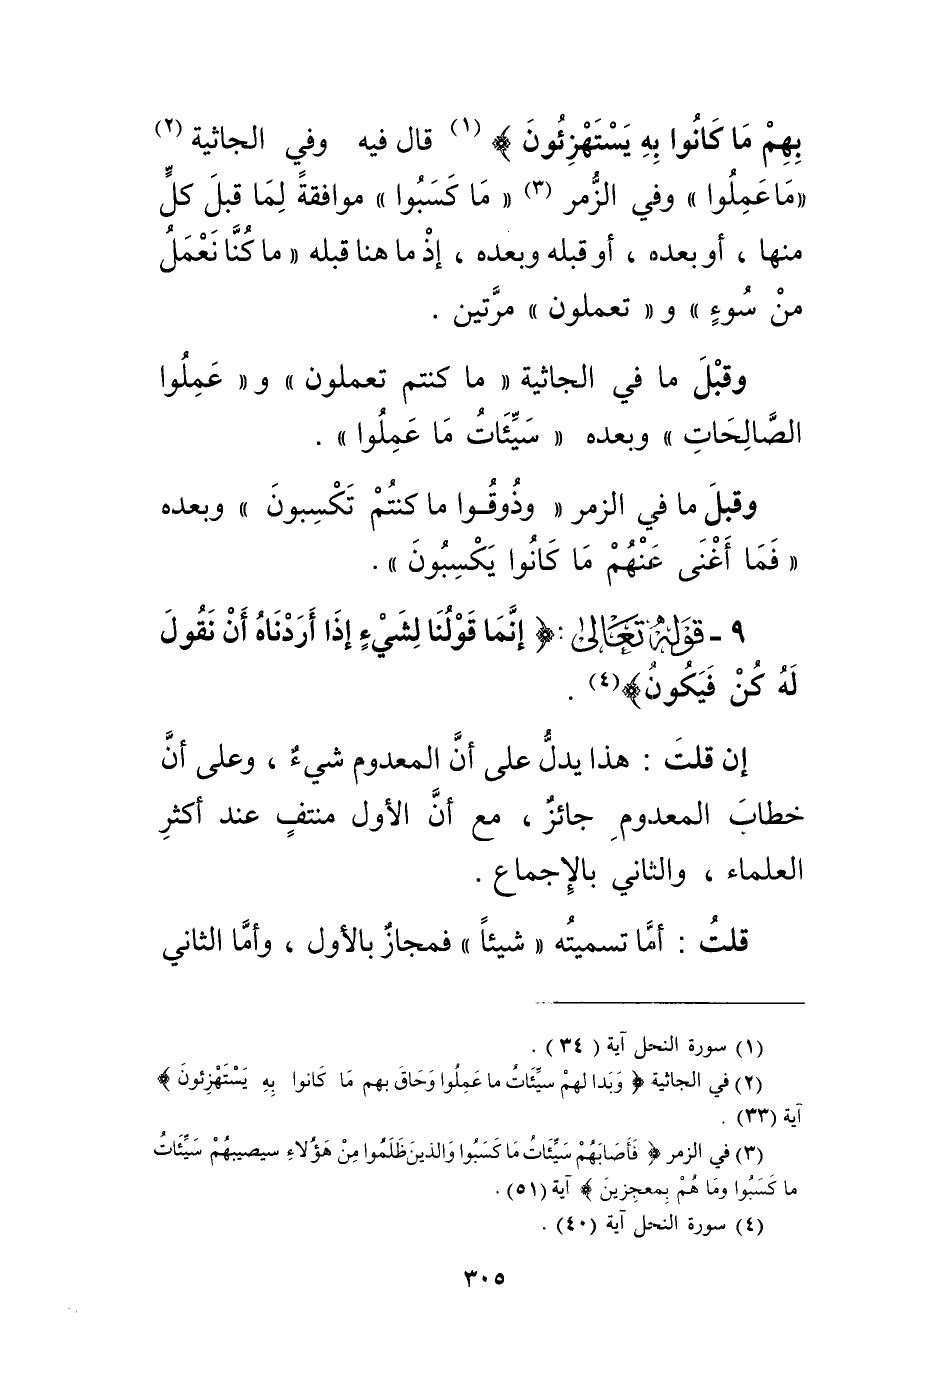 بِهِمْ مَا كَانُوا بِهِ يَسْتَهْزِئُونَ ﴾ (١) قال فيه وفي الجاثية (٢)
«مَا عَمِلُوا » وفي الزُّمر (٣) « مَا كَسَبُوا » موافقةً لِمَا قبلَ كلٍّ
منها ، أو بعده ، أو قبله وبعده ، إذْ ما هنا قبله « ما كُنَّا نَعْمَلُ
منْ سُوءٍ » و « تعملون » مرَّتين .
وقبْلَ ما في الجاثية « ما كنتم تعملون » و « عَمِلُوا
الصَّالِحَاتِ » وبعده « سَيِّئَاتُ مَا عَمِلُوا » .
وقبلَ ما في الزمر « وذُوقُوا ما كنتُمْ تَكْسِبونَ » وبعده
« فَمَا أَغْنَى عَنْهُمْ مَا كَانُوا يَكْسِبُونَ » .
٩ - قَوْلُهُ تَعَالَىٰ : ﴿ إنَّمَا قَوْلُنَا لِشَيْءٍ إذَا أَرَدْنَاهُ أَنْ نَقُولَ
لَهُ كُنْ فَيَكُونُ﴾(٤) .
إن قلتَ : هذا يدلُّ على أنَّ المعدوم شيءٌ ، وعلى أنَّ
خطابَ المعدومِ جائزٌ ، مع أنَّ الأول منتفٍ عند أكثرِ
العلماء ، والثاني بالإجماع .
قلتُ : أمَّا تسميتُه « شيئاً » فمجازٌ بالأول ، وأمَّا الثاني
(١) سورة النحل آية ( ٣٤ ) .
(٢) في الجاثية ﴿ وَبَدا لهمْ سيِّئَاتُ ما عَمِلُوا وَحَاقَ بهم مَا كَانوا بِهِ يَسْتَهْزِئونَ ﴾
آية (٣٣) .
(٣) في الزمر ﴿ فَأَصَابَهُمْ سَيِّئَاتُ مَا كَسَبُوا وَالذينَ ظَلَمُوا مِنْ هَؤُلاءِ سيصيبهُمْ سَيِّئَاتُ
ما كَسَبُوا ومَا هُمْ بِمعجزينَ ﴾ آية (٥١) .
(٤) سورة النحل آية (٤٠) .
٣٠٥